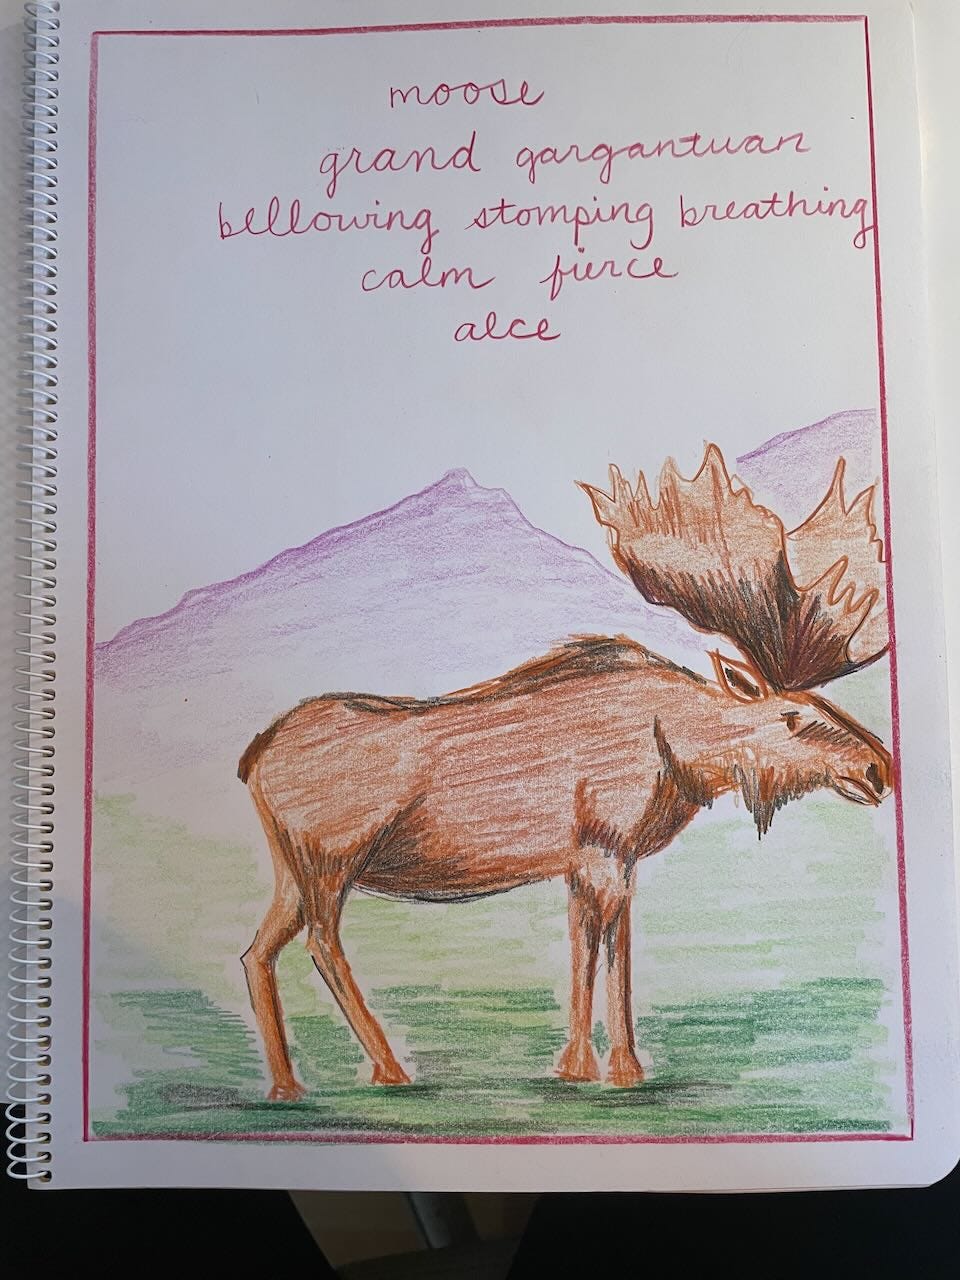 moose
grand gargantuan
bellowing stomping breathing
calm fierce
alce